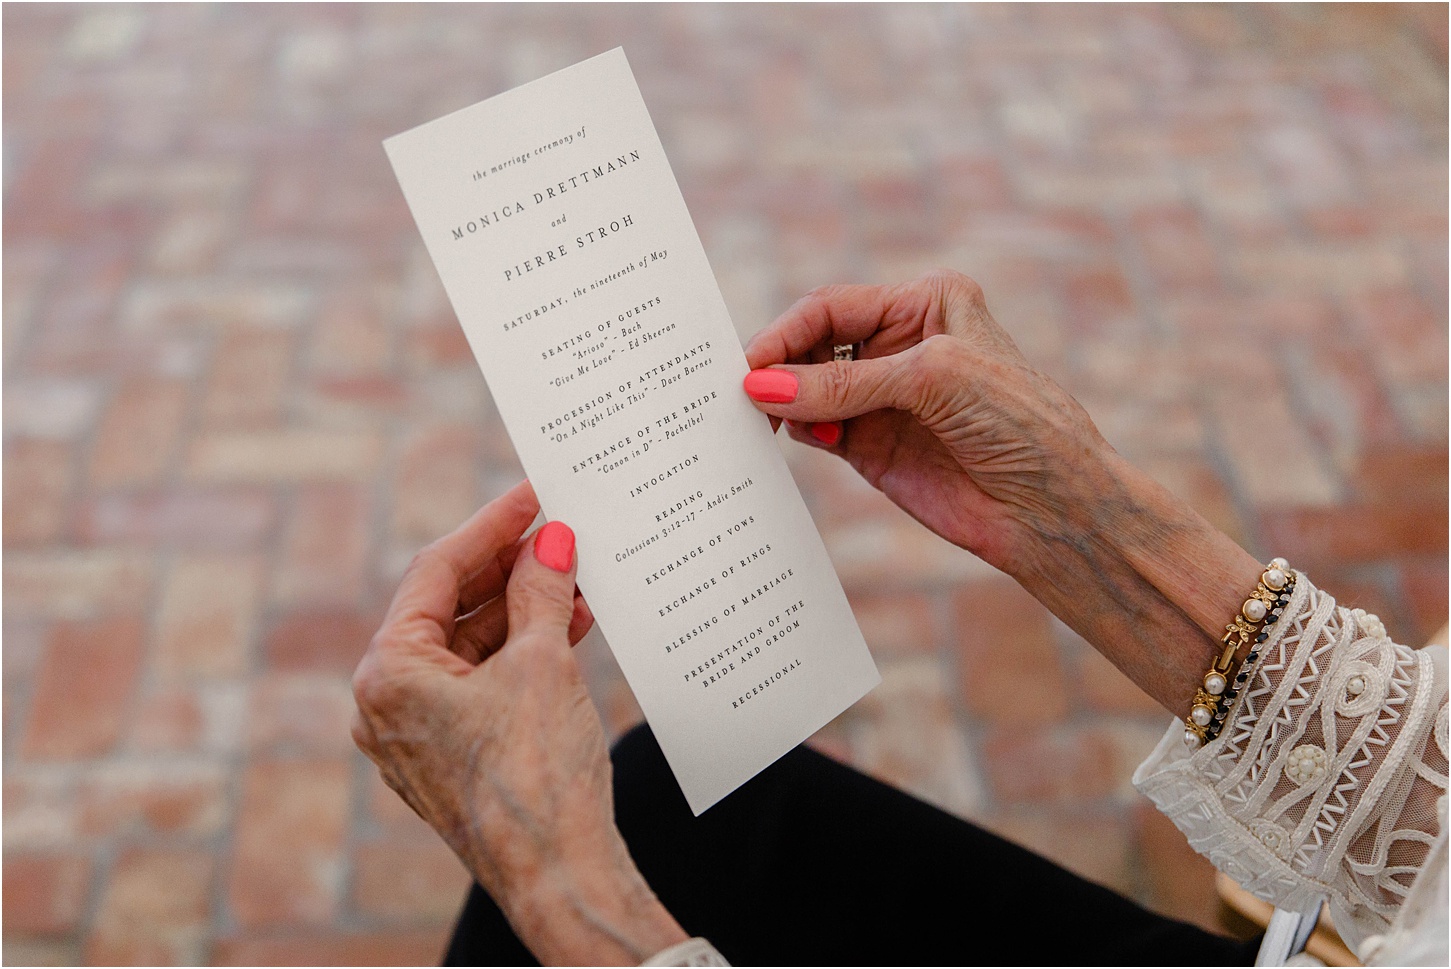 the marriage ceremony of
MONICA DRETTMANN
and
PIERRE STROH
SATURDAY, the nineteenth of May
SEATING OF GUESTS
"Arioso" - Bach
"Give Me Love" - Ed Sheeran
PROCESSION OF ATTENDANTS
"On A Night Like This" - Dave Barnes
ENTRANCE OF THE BRIDE
"Canon in D" - Pachelbel
INVOCATION
READING
Colossians 3:12-17 - Andie Smith
EXCHANGE OF VOWS
EXCHANGE OF RINGS
BLESSING OF MARRIAGE
PRESENTATION OF THE
BRIDE AND GROOM
RECESSIONAL